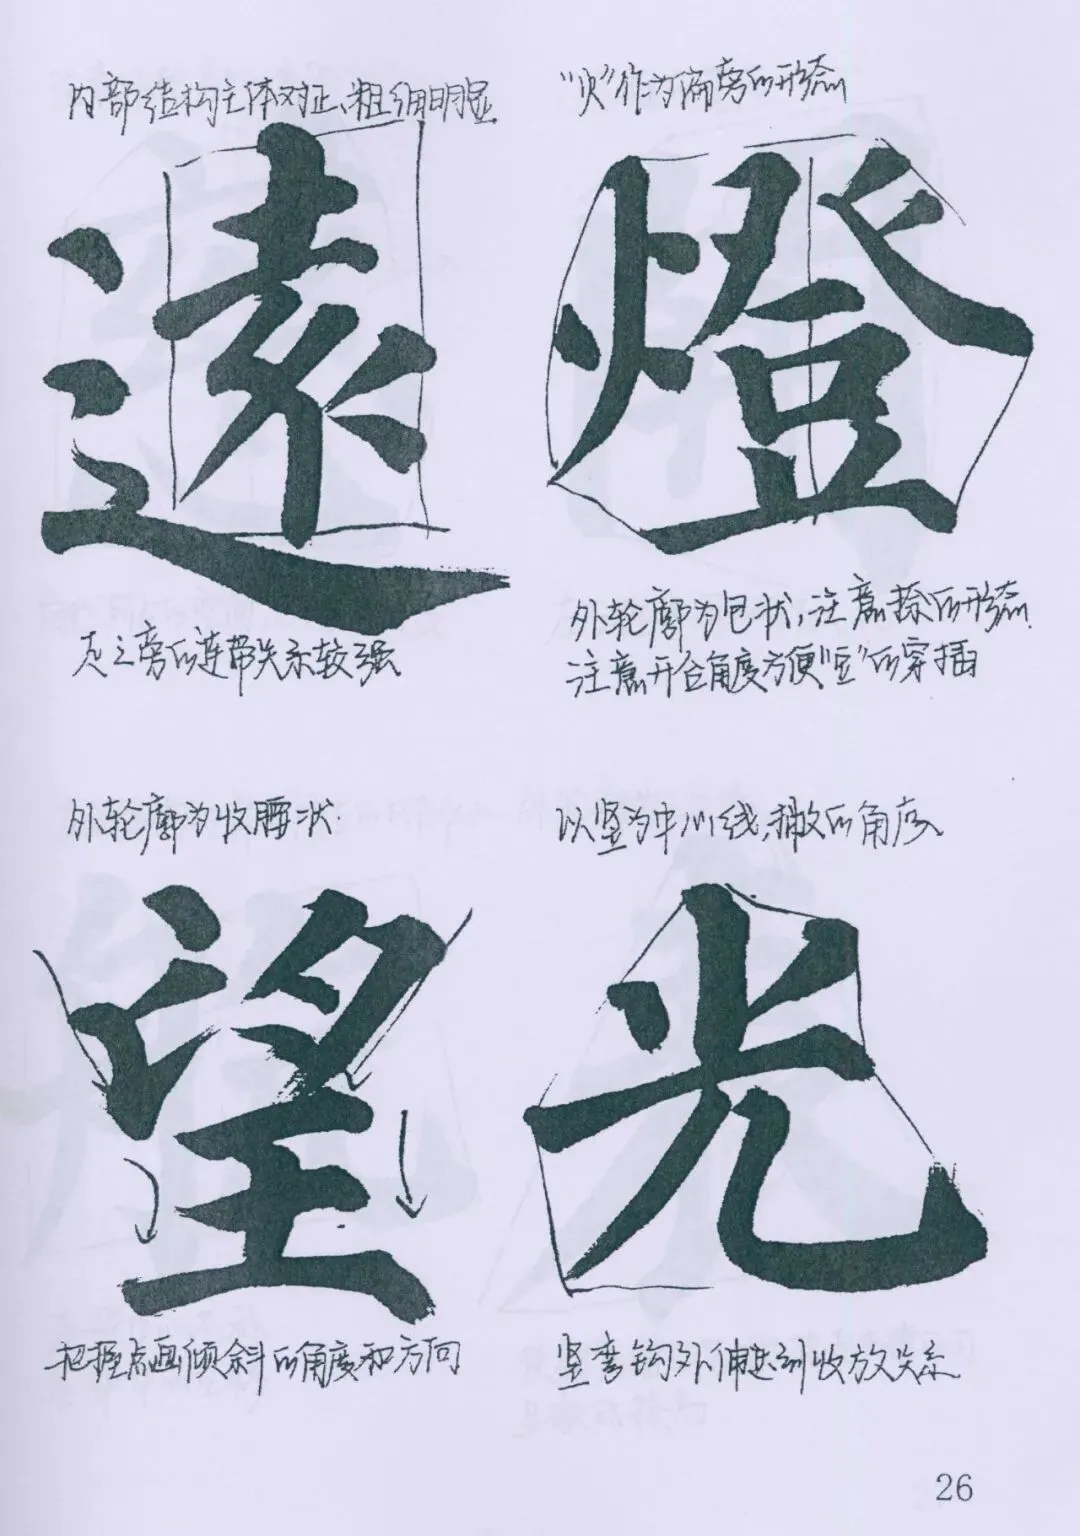 内部结构主体对正、粗细明显
遠
走之旁的连带关系较强
“火”作为偏旁的形态
燈
外轮廓为包状，注意捺的形态
注意开合角度方便“豆”的穿插
外轮廓为收腰状
望
把握点画倾斜的角度和方向
以竖为中心线，撇的角度
光
竖弯钩外伸达到收放关系
26